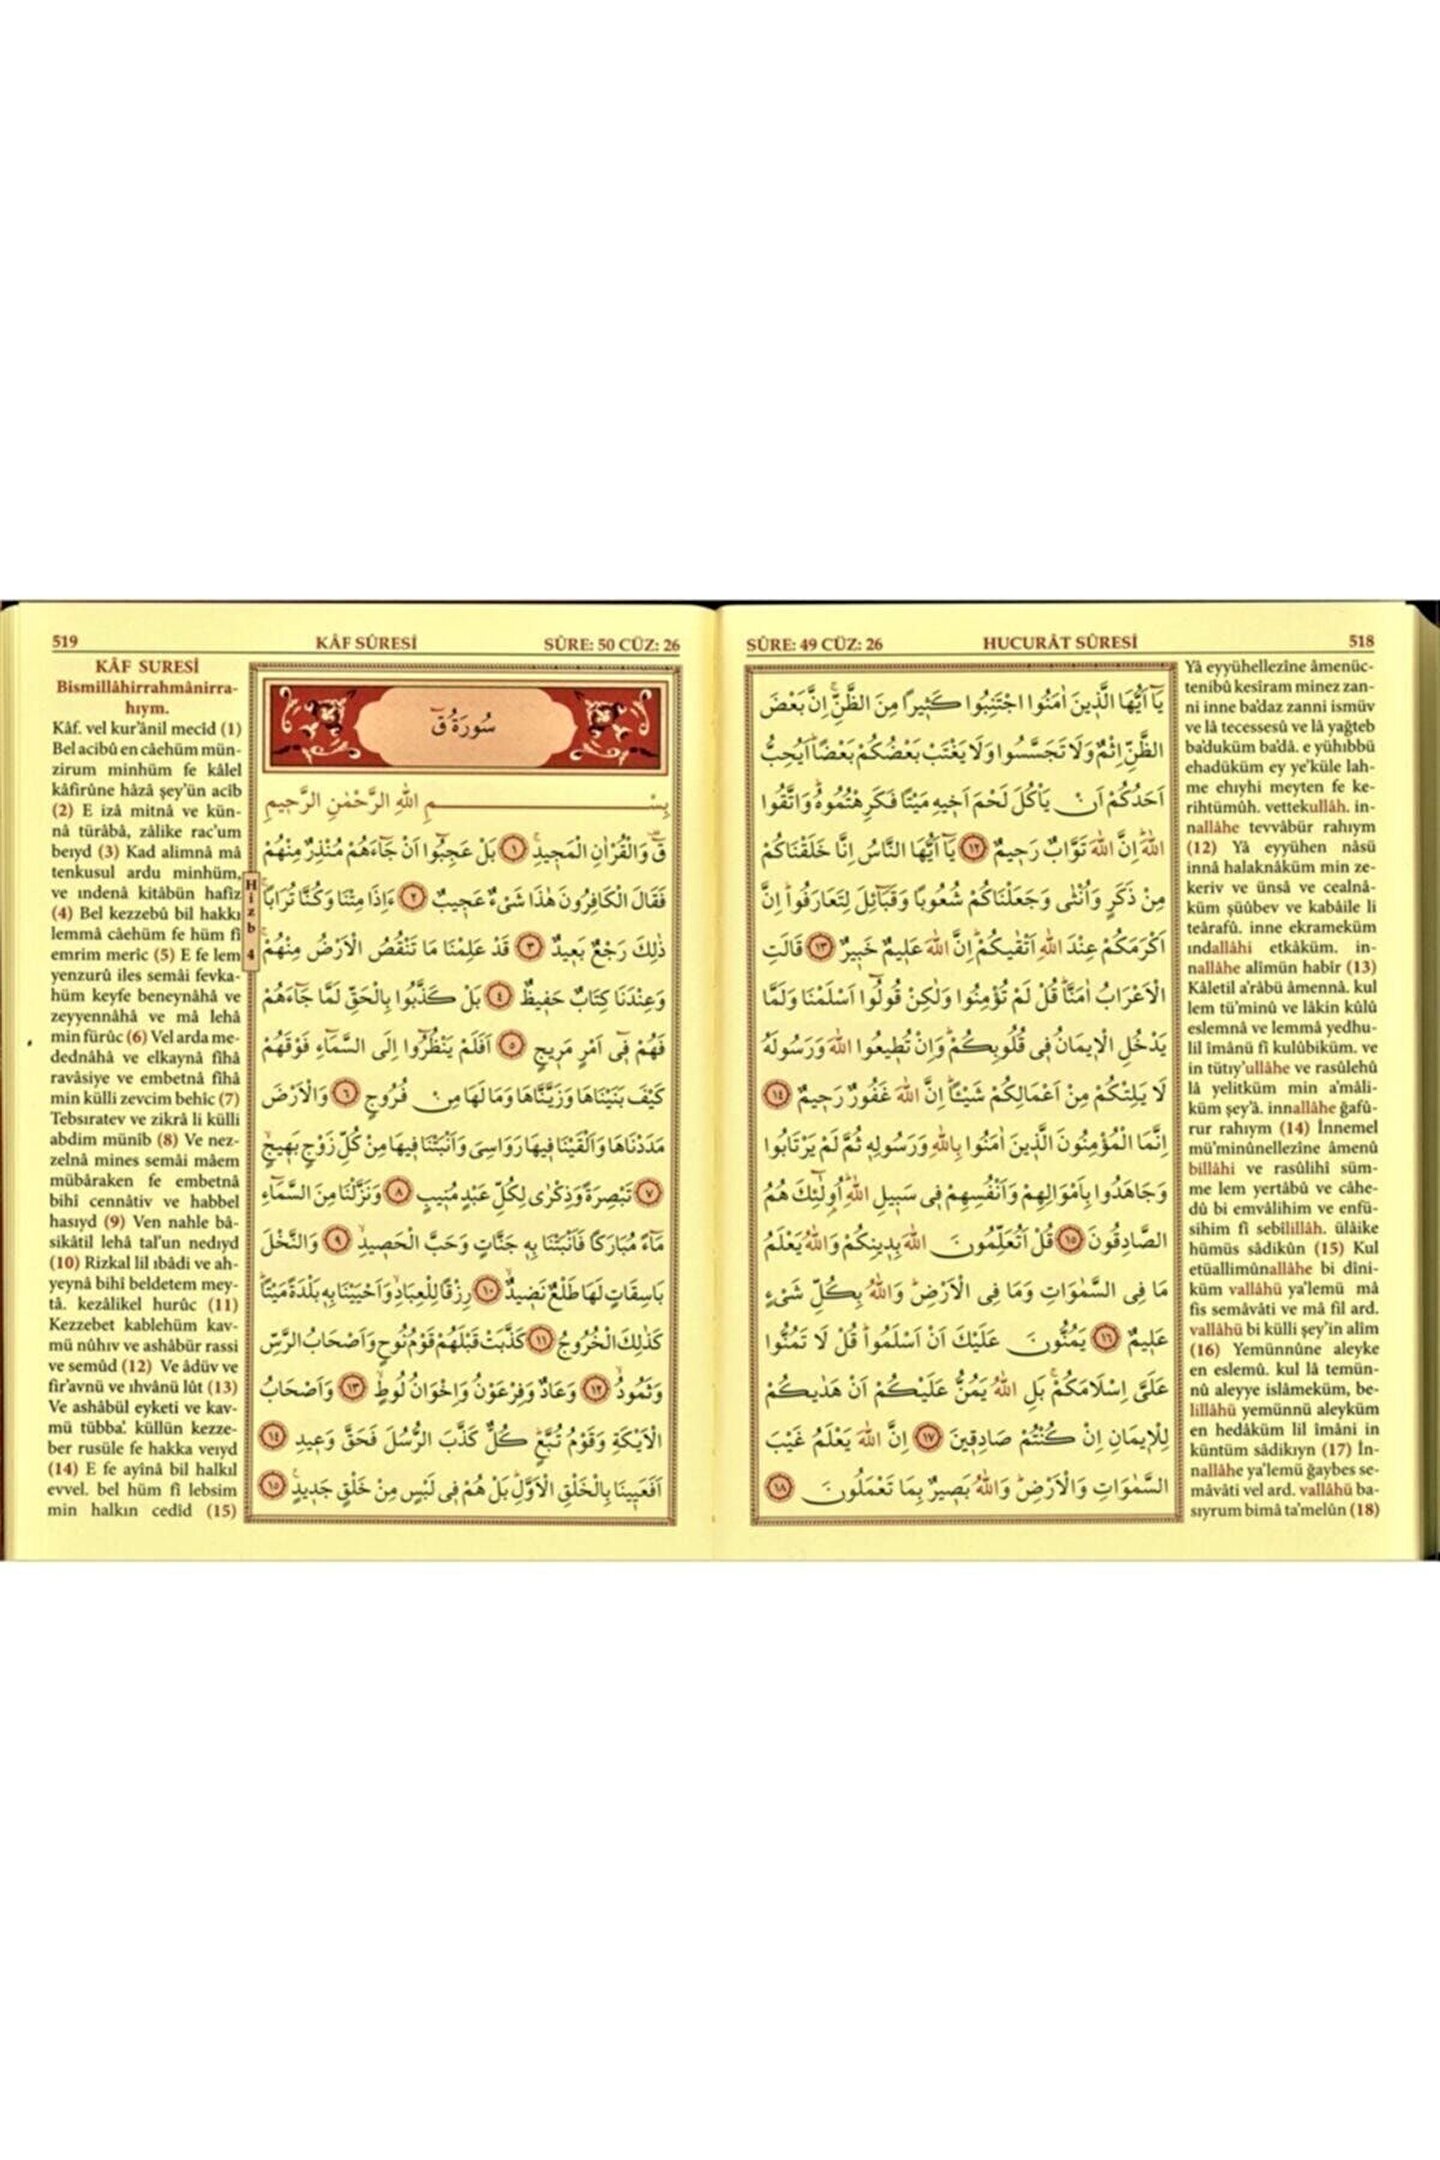 SÛRE: 49 CÜZ: 26 HUCURÂT SÛRESİ 518
يَٓا اَيُّهَا الَّذ۪ينَ اٰمَنُوا اجْتَنِبُوا كَث۪يرًا مِنَ الظَّنِّۘ اِنَّ بَعْضَ
الظَّنِّ اِثْمٌ وَلَا تَجَسَّسُوا وَلَا يَغْتَبْ بَعْضُكُمْ بَعْضًاۜ اَيُحِبُّ
اَحَدُكُمْ اَنْ يَأْكُلَ لَحْمَ اَخ۪يهِ مَيْتًا فَكَرِهْتُمُوهُۜ وَاتَّقُوا
اللّٰهَۜ اِنَّ اللّٰهَ تَوَّابٌ رَح۪يمٌ ﴿١٢﴾ يَٓا اَيُّهَا النَّاسُ اِنَّا خَلَقْنَاكُمْ
مِنْ ذَكَرٍ وَاُنْثٰى وَجَعَلْنَاكُمْ شُعُوبًا وَقَبَٓائِلَ لِتَعَارَفُواۜ اِنَّ
اَكْرَمَكُمْ عِنْدَ اللّٰهِ اَتْقٰيكُمْۜ اِنَّ اللّٰهَ عَل۪يمٌ خَب۪يرٌ ﴿١٣﴾ قَالَتِ
الْاَعْرَابُ اٰمَنَّاۜ قُلْ لَمْ تُؤْمِنُوا وَلٰكِنْ قُولُٓوا اَسْلَمْنَا وَلَمَّا
يَدْخُلِ الْا۪يمَانُ ف۪ي قُلُوبِكُمْۜ وَاِنْ تُط۪يعُوا اللّٰهَ وَرَسُولَهُ
لَا يَلِتْكُمْ مِنْ اَعْمَالِكُمْ شَيْـًٔاۜ اِنَّ اللّٰهَ غَفُورٌ رَح۪يمٌ ﴿١٤﴾
اِنَّمَا الْمُؤْمِنُونَ الَّذ۪ينَ اٰمَنُوا بِاللّٰهِ وَرَسُولِه۪ ثُمَّ لَمْ يَرْتَابُوا
وَجَاهَدُوا بِاَمْوَالِهِمْ وَاَنْفُسِهِمْ ف۪ي سَب۪يلِ اللّٰهِۜ اُو۬لٰٓئِكَ هُمُ
الصَّادِقُونَ ﴿١٥﴾ قُلْ اَتُعَلِّمُونَ اللّٰهَ بِد۪ينِكُمْۜ وَاللّٰهُ يَعْلَمُ
مَا فِي السَّمٰوَاتِ وَمَا فِي الْاَرْضِۜ وَاللّٰهُ بِكُلِّ شَيْءٍ
عَل۪يمٌ ﴿١٦﴾ يَمُنُّونَ عَلَيْكَ اَنْ اَسْلَمُواۜ قُلْ لَا تَمُنُّوا
عَلَيَّ اِسْلَامَكُمْۚ بَلِ اللّٰهُ يَمُنُّ عَلَيْكُمْ اَنْ هَدٰيكُمْ
لِلْا۪يمَانِ اِنْ كُنْتُمْ صَادِق۪ينَ ﴿١٧﴾ اِنَّ اللّٰهَ يَعْلَمُ غَيْبَ
السَّمٰوَاتِ وَالْاَرْضِۜ وَاللّٰهُ بَص۪يرٌ بِمَا تَعْمَلُونَ ﴿١٨﴾
Yâ eyyühellezîne âmenüc-
tenibû kesîram minez zan-
ni inne ba'daz zanni ismüv
ve lâ tecessesû ve lâ yağteb
ba'duküm ba'dâ. e yühıbbü
ehadüküm ey ye'küle lah-
me ehıyhi meyten fe ke-
rihtümûh. vettekullâh. in-
nallâhe tevvâbür rahıym
(12) Yâ eyyühen nâsü
innâ halaknâküm min ze-
keriv ve ünsâ ve cealnâ-
küm şüûbev ve kabâile li
teârafû. inne ekrameküm
ındallâhi etkâküm. in-
nallâhe alîmün habîr (13)
Kâletil a'râbü âmennâ. kul
lem tü'minû ve lâkin kûlû
eslemnâ ve lemmâ yedhu-
lil îmânü fî kulûbiküm. ve
in tütıy'ullâhe ve rasûlehû
lâ yelitküm min a'mâli-
küm şey'â. innallâhe ğafû-
rur rahıym (14) İnnemel
mü'minûnellezîne âmenû
billâhi ve rasûlihî süm-
me lem yertâbû ve câhe-
dû bi emvâlihim ve enfü-
sihim fî sebîlillâh. ülâike
hümüs sâdikûn (15) Kul
etüallimûnallâhe bi dîni-
küm vallâhü ya'lemü mâ
fis semâvâti ve mâ fil ard.
vallâhü bi külli şey'in alîm
(16) Yemünnûne aleyke
en eslemû. kul lâ temün-
nû aleyye islâmeküm, be-
lillâhü yemünnü aleyküm
en hedâküm lil îmâni in
küntüm sâdikıyn (17) İn-
nallâhe ya'lemü ğaybes se-
mâvâti vel ard. vallâhü ba-
sıyrum bimâ ta'melûn (18)
519 KÂF SÛRESİ SÛRE: 50 CÜZ: 26
سُورَةُ قٓ
بِسْمِ اللّٰهِ الرَّحْمٰنِ الرَّح۪يمِ
قٓ۠ وَالْقُرْاٰنِ الْمَج۪يدِۚ ﴿١﴾ بَلْ عَجِبُٓوا اَنْ جَٓاءَهُمْ مُنْذِرٌ مِنْهُمْ
فَقَالَ الْكَافِرُونَ هٰذَا شَيْءٌ عَج۪يبٌۚ ﴿٢﴾ ءَاِذَا مِتْنَا وَكُنَّا تُرَابًاۚ
ذٰلِكَ رَجْعٌ بَع۪يدٌ ﴿٣﴾ قَدْ عَلِمْنَا مَا تَنْقُصُ الْاَرْضُ مِنْهُمْۚ
وَعِنْدَنَا كِتَابٌ حَف۪يظٌ ﴿٤﴾ بَلْ كَذَّبُوا بِالْحَقِّ لَمَّا جَٓاءَهُمْ
فَهُمْ ف۪ٓي اَمْرٍ مَر۪يجٍ ﴿٥﴾ اَفَلَمْ يَنْظُرُٓوا اِلَى السَّمَٓاءِ فَوْقَهُمْ
كَيْفَ بَنَيْنَاهَا وَزَيَّنَّاهَا وَمَا لَهَا مِنْ فُرُوجٍ ﴿٦﴾ وَالْاَرْضَ
مَدَدْنَاهَا وَاَلْقَيْنَا ف۪يهَا رَوَاسِيَ وَاَنْبَتْنَا ف۪يهَا مِنْ كُلِّ زَوْجٍ بَه۪يجٍۙ
﴿٧﴾ تَبْصِرَةً وَذِكْرٰى لِكُلِّ عَبْدٍ مُن۪يبٍ ﴿٨﴾ وَنَزَّلْنَا مِنَ السَّمَٓاءِ
مَٓاءً مُبَارَكًا فَاَنْبَتْنَا بِه۪ جَنَّاتٍ وَحَبَّ الْحَص۪يدِۙ ﴿٩﴾ وَالنَّخْلَ
بَاسِقَاتٍ لَهَا طَلْعٌ نَض۪يدٌۙ ﴿١٠﴾ رِزْقًا لِلْعِبَادِۙ وَاَحْيَيْنَا بِه۪ بَلْدَةً مَيْتًاۜ
كَذٰلِكَ الْخُرُوجُ ﴿١١﴾ كَذَّبَتْ قَبْلَهُمْ قَوْمُ نُوحٍ وَاَصْحَابُ الرَّسِّ
وَثَمُودُۙ ﴿١٢﴾ وَعَادٌ وَفِرْعَوْنُ وَاِخْوَانُ لُوطٍۙ ﴿١٣﴾ وَاَصْحَابُ
الْاَيْكَةِ وَقَوْمُ تُبَّعٍۜ كُلٌّ كَذَّبَ الرُّسُلَ فَحَقَّ وَع۪يدِ ﴿١٤﴾
اَفَعَي۪ينَا بِالْخَلْقِ الْاَوَّلِۜ بَلْ هُمْ ف۪ي لَبْسٍ مِنْ خَلْقٍ جَد۪يدٍ۟ ﴿١٥﴾
Hizb 4
KÂF SURESİ
Bismillâhirrahmânirra-
hıym.
Kâf. vel kur'ânil mecîd (1)
Bel acibû en câehüm mün-
zirum minhüm fe kâlel
kâfirûne hâzâ şey'ün acîb
(2) E izâ mitnâ ve kün-
nâ türâbâ, zâlike rac'um
beıyd (3) Kad alimnâ mâ
tenkusul ardu minhüm,
ve ındenâ kitâbün hafîz
(4) Bel kezzebû bil hakkı
lemmâ câehüm fe hüm fî
emrim merîc (5) E fe lem
yenzurû iles semâi fevka-
hüm keyfe beneynâhâ ve
zeyyennâhâ ve mâ lehâ
min fürûc (6) Vel arda me-
dednâhâ ve elkaynâ fîhâ
ravâsiye ve embetnâ fîhâ
min külli zevcim behîc (7)
Tebsıratev ve zikrâ li külli
abdim münîb (8) Ve nez-
zelnâ mines semâi mâem
mübâraken fe embetnâ
bihî cennâtiv ve habbel
hasıyd (9) Ven nahle bâ-
sikâtil lehâ tal'un nedıyd
(10) Rizkal lil ıbâdi ve ah-
yeynâ bihî beldetem mey-
tâ. kezâlikel hurûc (11)
Kezzebet kablehüm kav-
mü nûhıv ve ashâbür rassi
ve semûd (12) Ve âdüv ve
fir'avnü ve ıhvânü lût (13)
Ve ashâbül eyketi ve kav-
mü tübba'. küllün kezze-
ber rusüle fe hakka veıyd
(14) E fe ayînâ bil halkıl
evvel. bel hüm fî lebsim
min halkın cedîd (15)